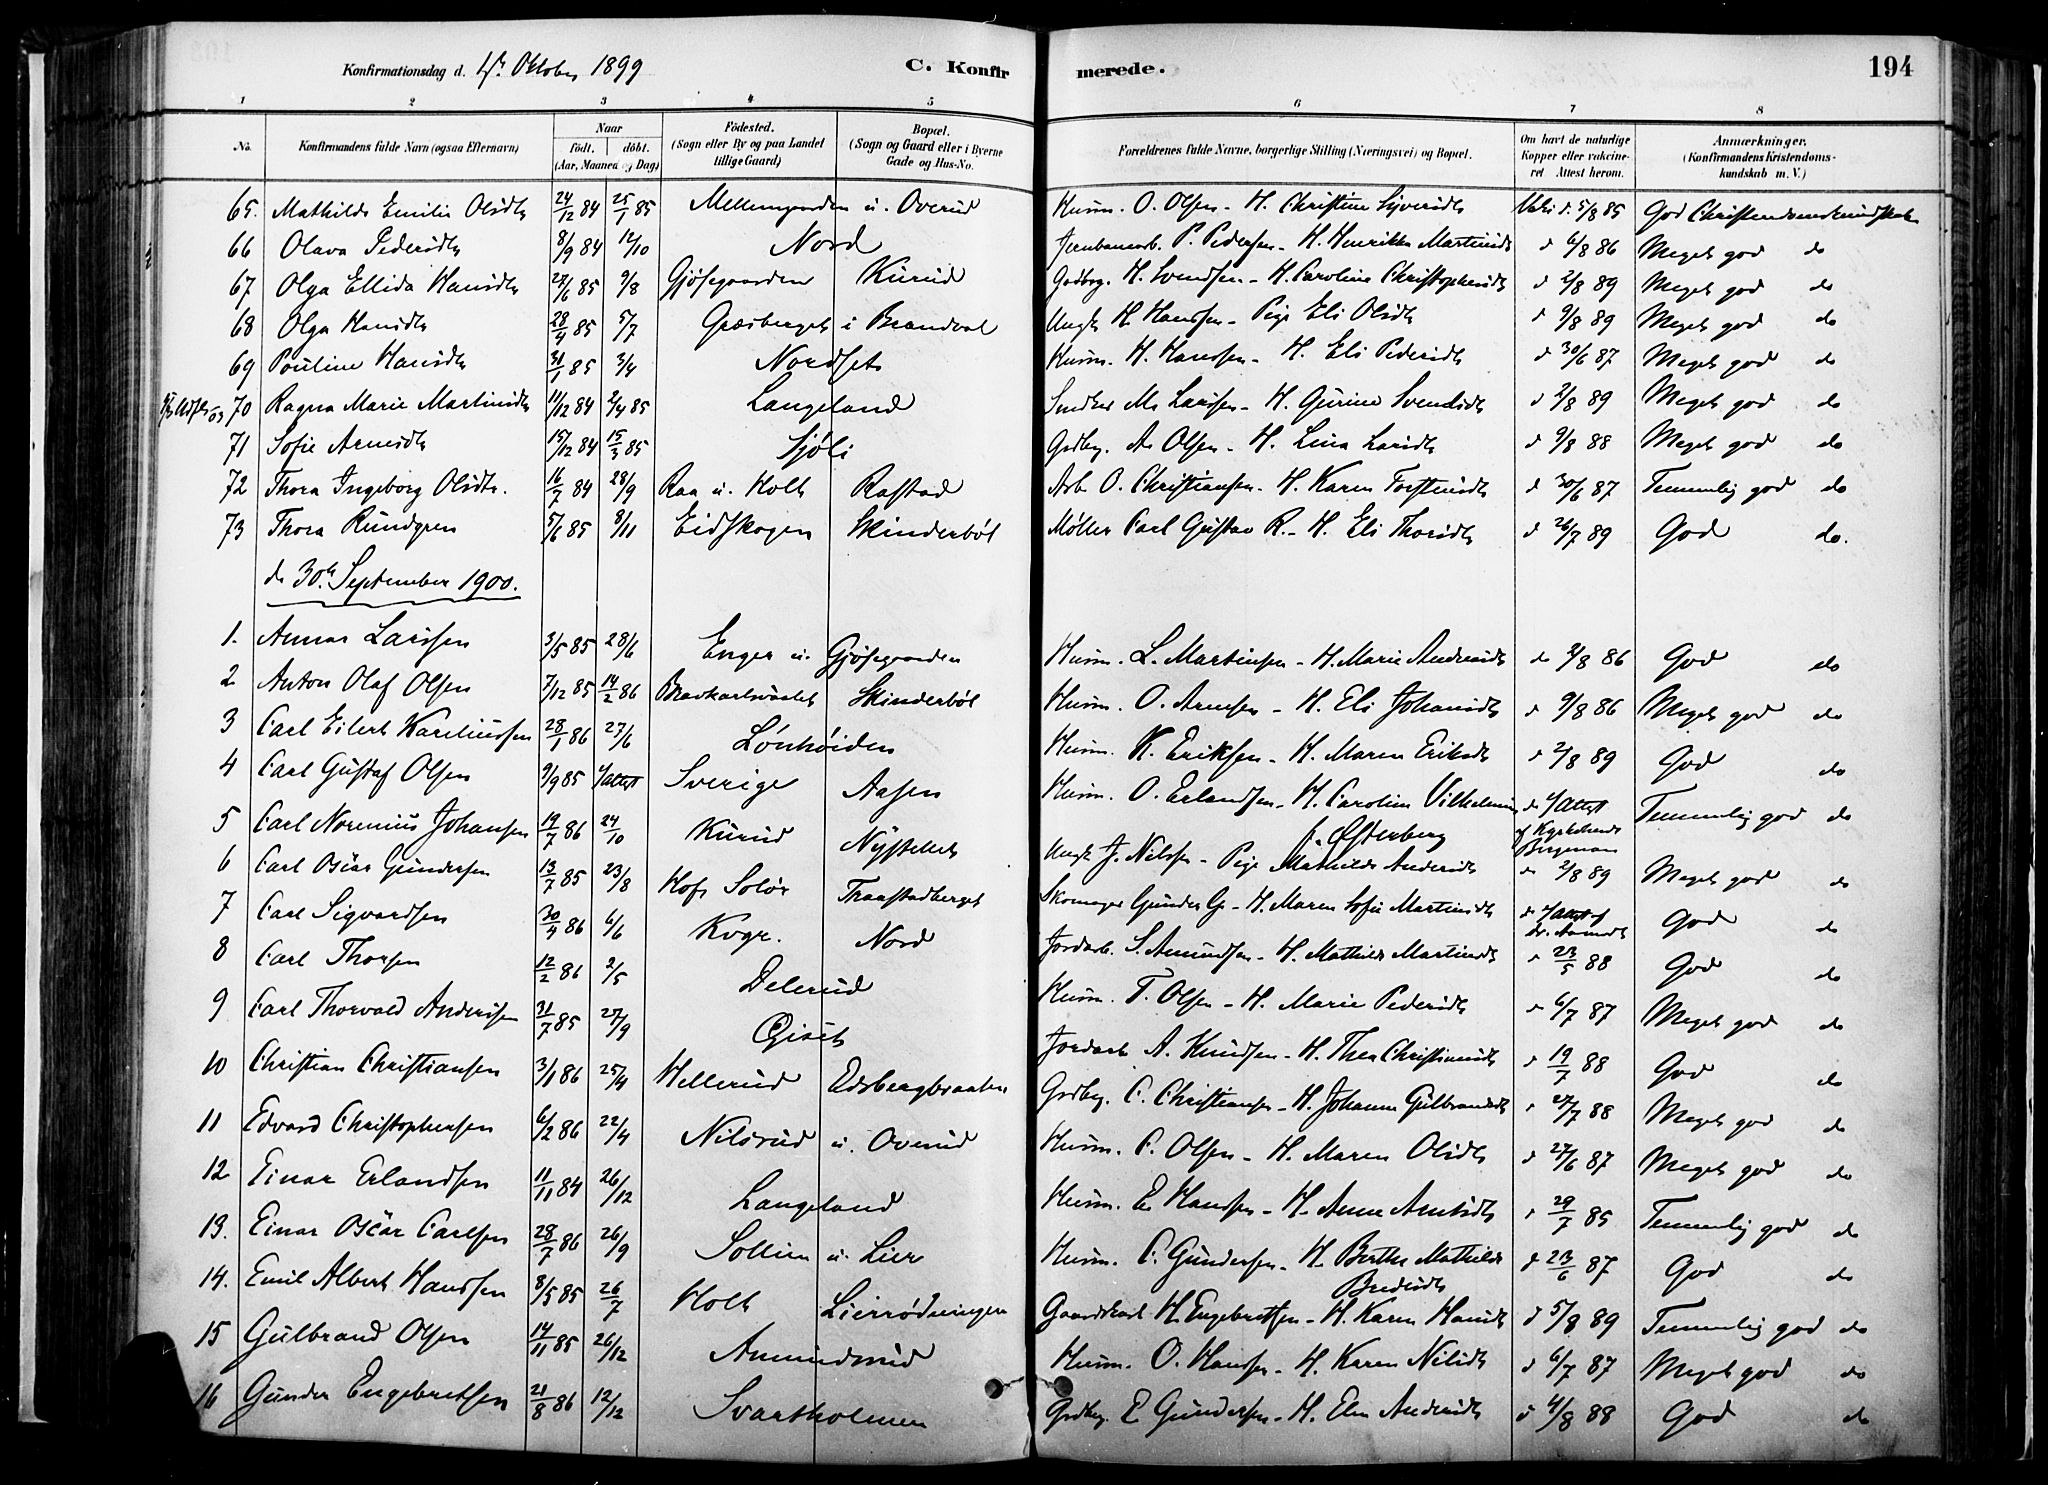 Konfirmationsdag d. 1ste Oktober 1899 C. Konfirmerede. 194
1 2 3 4 5 6 7 8
No. Konfirmandens fulde Navn (ogsaa Efternavn) Naar født. døbt. (Aar, Maaned og Dag) Fødested. (Sogn eller By og paa Landet tillige Gaard) Bopæl. (Sogn og Gaard eller i Byerne Gade og Hus-No. Forældrenes fulde Navne, borgerlige Stilling (Næringsvei) og Bopæl. Om havt de naturlige Kopper eller vaccineret Attest herom. Anmærkninger. (Konfirmandens Kristendomskundskab m. V.)
65. Mathilde Emilie Olsdtr 24/12 84 25/1 85 Mellemgaarden u. Overud Husm. O. Olsen - H. Christine Syversdtr Vaks d. 5/8 85 God Christendomskundskab
66 Olava Pedersdtr 8/9 84 12/10 Nord Jernbanearb. P. Pedersen - H. Henrikke Martinsdtr d 6/8 86 Meget god do
67 Olga Ellida Hansdtr 27/6 85 9/8 Gjøsegaarden Kurud Gdbrg. H. Svendsen - H. Caroline Christophersdtr d 2/8 89 Meget god do
68 Olga Hansdtr 28/4 85 5/7 Græsberget i Brandval Ungk H Hanssen - Pige Eli Olsdtr d 9/8 89 Meget god do
69 Pauline Hansdtr 31/1 85 3/4 Nordset Husm. H. Hanssen - H. Eli Pedersdtr d 30/6 87 Meget god do
70 Ragna Marie Martinsdtr 11/12 84 2/4 85 Langeland Snedker M. Larssen - H. Gurine Svendsdtr d 2/8 89 Meget god do
71 Sofie Arnesdtr 15/12 84 15/3 85 Sjøli Gdbrg. A. Olsen - H. Lina Larsdtr d 9/8 88 Meget god do
72 Thora Ingeborg Olsdtr. 16/7 84 28/9 Raa u. Holt Rastad Arb O. Christiansen - H. Karen Torstensdtr d 30/6 87 Temmelig god do
73 Thora Rundgren 5/6 85 8/11 Eidskogen Skinderbøl Møller Carl Gustav R. - H. Eli Thorsdtr d 26/7 89 God do.
d. 30te September 1900.
1. Annar Larssen 3/5 85 28/6 Enger u. Gjøsegaarden Husm. L. Martinsen - H. Marie Andersdtr d 2/8 86 God do
2 Anton Olaf Olsen 7/12 85 14/2 86 Skinderbøl Husm. O. Arnesen - H. Eli Johansdtr d 9/8 86 Meget god do
3 Carl Eilert Kareliussen 28/1 86 27/6 Lønhøiden Husm. K. Eriksen - H. Maren Eriksdtr d 2/8 89 God do
4 Carl Gustaf Olsen 9/9 85 Sverige Aasen Husm. O. Erlandsen - H. Caroline Vilhelmine f. Østerberg Temmelig god do
5 Carl Noremius Johansen 19/7 86 24/10 Kurud Nystellet Ungk J. Nilssen - Pige Mathilde Andersdtr d 2/8 89 Meget god do
6 Carl Oscar Gundersen 13/7 85 23/8 Hof Solør Traastadberget Skomager Gunder G. - H. Maren Sofie Martinsdtr God do
7 Carl Sigvardsen 30/4 86 6/6 Kvgr. Nord Jordarb. S. Amundsen - H. Mathilde Martinsdtr d 23/5 88 God do
8 Carl Thorsen 12/2 86 2/5 Delerud Husm. T. Olsen - H. Marie Pedersdtr d 6/7 87 Meget god do
9 Carl Thorvald Andersen 31/7 85 27/9 Jordarb A. Knudsen - H. Thea Christiansdtr d 19/7 88 God do
10 Christian Christiansen 3/1 86 25/4 Hellerud Edsbergbraaten Gdbrg. C. Christiansen - H. Johanne Gulbrandsdtr d 27/7 88 Meget god do
11 Edvard Christophersen 6/2 86 22/4 Nilsrud u. Overud Husm. C. Olsen - H. Maren Olsdtr d 27/6 87 Meget god do
12 Einar Erlandsen 11/11 84 26/12 Langeland Husm. E Hanssen - H. Anne d 29/7 85 Temmelig god do
13. Einar Oscar Carlsen 28/7 86 26/9 Sollien u. Lier Husm. C. Gundersen - H. Berthe Mathilde d 23/6 87 God do
14. Emil Albert Hanssen 8/5 85 26/7 Holt Lierrødningen Gaardskarl H. Engebretsen - H. Karen Hansdtr d 5/8 89 Temmelig god do
15 Gulbrand Olsen 14/11 85 26/12 Amundsrud Husm. O. Hanssen - H. Karen Nilsdtr d 6/7 87 Meget god do
16 Gunder Engebretsen 21/8 86 12/12 Svartholmen Gdbrg. E Gundersen - H. Elen Andersdtr d 4/8 88 God do